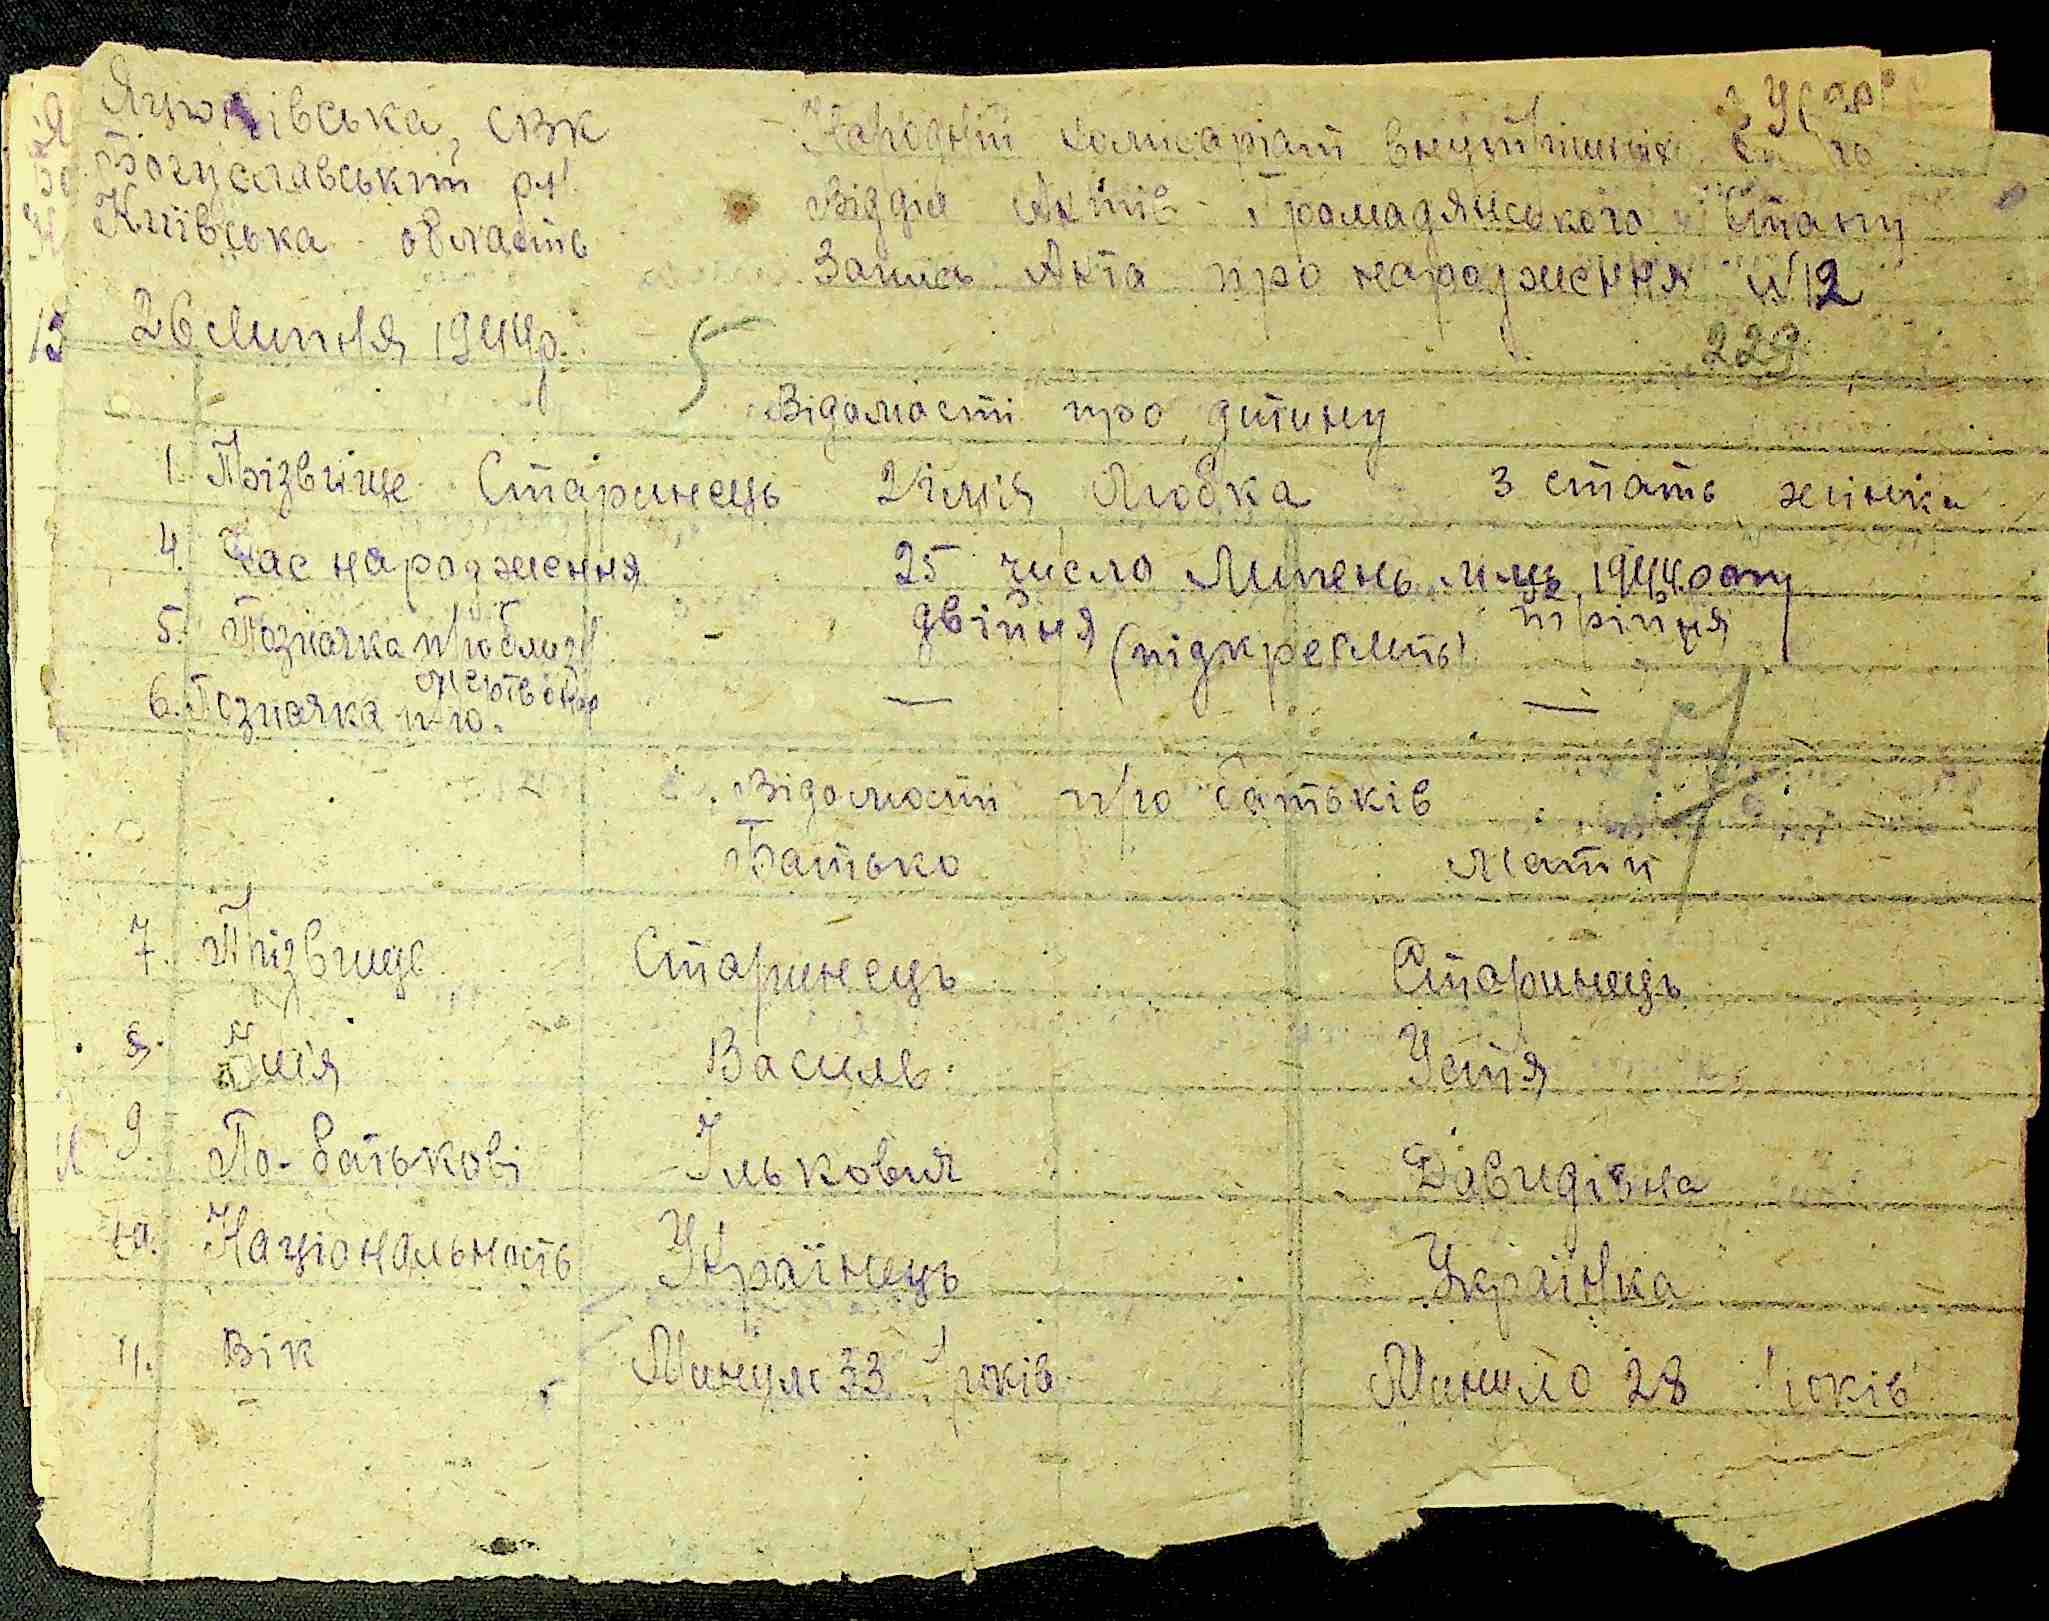 Яцюківська СВК
Богуславський р/
Київська область
26 Липня 1944р.
УССР
Народній Комісаріат внутрішніх
Відділ Актів Громадянського Стану
Запис Акта про народження №12
5
229
Відомості про дитину
1. Прізвище Старинець 2 імя Любка 3 стать жінка
4. Час народження 25 число Липень м-ць 1944 року
5. Позначка про близ/ двійня (підкреслить) трійня
6. Позначка про мертвонар — —
Відомости про батьків
Батько Мати
7. Прізвище Старинець Старинець
8. Імя Василь Устя
9. По-батькові Ількович Давидівна
10. Національность Українець Українка
11. Вік Минуло 33 років Минуло 28 років